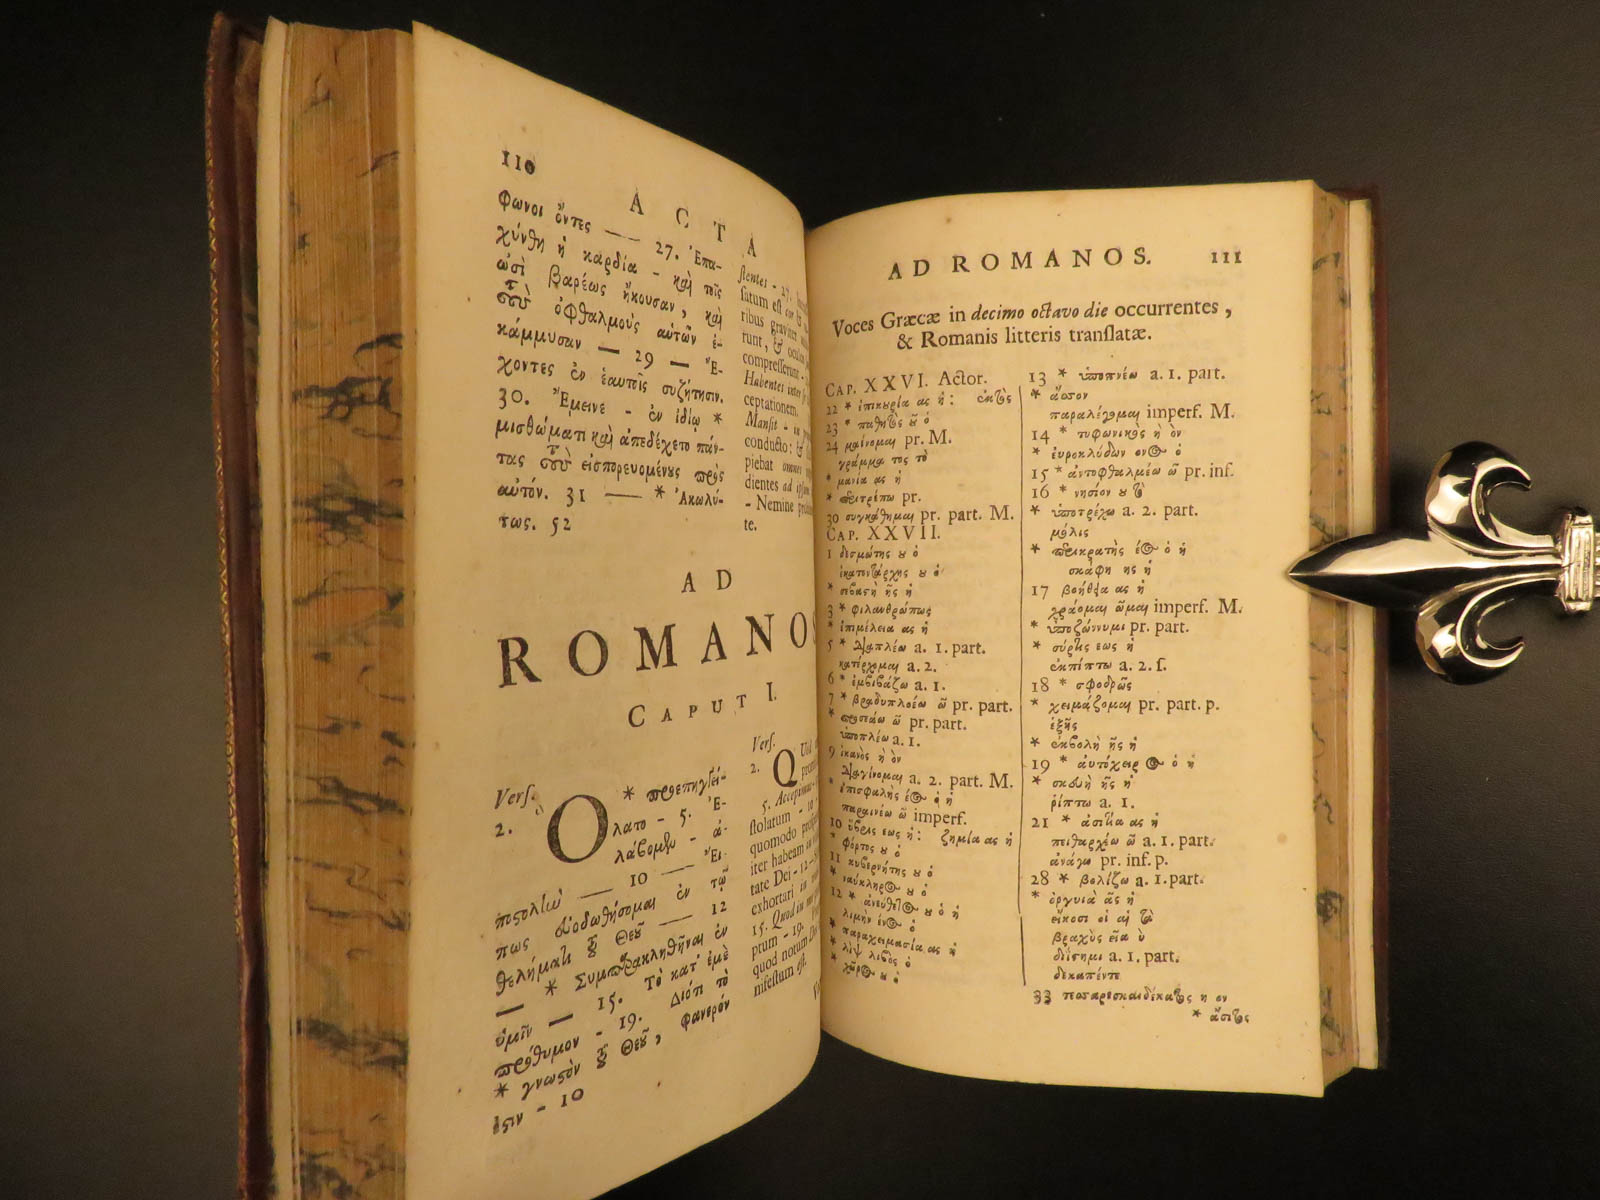 110
ACTA
φωνοι ὄντες —— 27. Ἐπα-
χύνθη ἡ καρδία - καὶ τοῖς
ὠσὶ βαρέως ἤκουσαν, καὶ
τοὺς ὀφθαλμοὺς αὐτῶν ἐ-
κάμμυσαν — 29 — Ἔ-
χοντες ἐν ἑαυτοῖς συζήτησιν.
30. Ἔμεινε - ἐν ἰδίῳ *
μισθώματι καὶ ἀπεδέχετο πάν-
τας τοὺς εἰσπορευομένους πρὸς
αὐτόν. 31 —— * Ἀκωλύ-
τως. 52
stentes - 27.
satum est cor
ribus graviter
runt, & oculos
compresserunt -
Habentes inter
ceptationem.
Mansit - in
conducto: &
piebat omnes
dientes ad ipsum
- Nemine
te.
AD
ROMANOS
CAPUT I.
Vers.
2. Ὃ * προεπηγγεί-
λατο - 5. Ἐ-
λάβομεν - ἀ-
ποστολὴν —— 10 —— Εἴ-
πως εὐοδωθήσομαι ἐν τῷ
θελήματι τοῦ Θεοῦ —— 12
— * Συμπαρακληθῆναι ἐν
ὑμῖν —— 15. Τὸ κατ' ἐμὲ
πρόθυμον - 19. Διότι τὸ
* γνωστὸν τοῦ Θεοῦ, φανερόν
ἐστιν - 10
Vers.
2. Quod
5. Accepimus
stolatum - 10 -
quomodo
iter habeam in
tate Dei - 12 -
exhortari in
15. Quod in me
ptum - 19.
quod notum
nifestum est.
AD ROMANOS. 111
Voces Græcæ in decimo octavo die occurrentes,
& Romanis litteris translatæ.
CAP. XXVI. Actor.
22 * ἐπικουρία ας ἡ: ἐκτὸς
23 * παθητὸς οῦ ὁ
24 μαίνομαι pr. M.
γράμμα τος τὸ
* μανία ας ἡ
* περιτρέπω pr.
30 συγκάθημαι pr. part. M.
CAP. XXVII.
1 δεσμώτης ου ὁ
ἑκατοντάρχης ου ὁ
* σεβαστὴ ῆς ἡ
3 * φιλανθρώπως
* ἐπιμέλεια ας ἡ
5 * διαπλέω a. 1. part.
κατέρχομαι a. 2.
6 * ἐμβιβάζω a. 1.
7 * βραδυπλοέω ῶ pr. part.
* προσεάω ῶ pr. part.
ὑποπλέω a. 1.
9 ἱκανὸς ἡ ὸν
διαγίνομαι a. 2. part. M.
* ἐπισφαλὴς έος ὁ ἡ
* παραινέω ῶ imperf.
10 ὕβρις εως ἡ: ζημία ας ἡ
* φόρτος ου ὁ
11 κυβερνήτης ου ὁ
* ναύκληρος ου ὁ
12 * ἀνεύθετος ου ὁ ἡ
λιμὴν ένος ὁ
* παραχειμασία ας ἡ
* λὶψ λιβὸς ὁ
* χῶρος ου ὁ
13 * ὑποπνέω a. 1. part.
* ἆσσον
παραλέγομαι imperf. M.
14 * τυφωνικὸς ἡ ὸν
* εὐροκλύδων ονος ὁ
15 * ἀντοφθαλμέω ῶ pr. inf.
16 * νησίον ου τὸ
* ὑποτρέχω a. 2. part.
μόλις
* περικρατὴς έος ὁ ἡ
σκάφη ης ἡ
17 βοήθεια ας ἡ
χράομαι ῶμαι imperf. M.
* ὑποζώννυμι pr. part.
* σύρτις εως ἡ
ἐκπίπτω a. 2. s.
18 * σφοδρῶς
* χειμάζομαι pr. part. p.
ἑξῆς
* ἐκβολὴ ῆς ἡ
19 * αὐτόχειρ ος ὁ ἡ
* σκευὴ ῆς ἡ
ῥίπτω a. 1.
21 * ἀσιτία ας ἡ
πειθαρχέω ῶ a. 1. part.
ἀνάγω pr. inf. p.
28 * βολίζω a. 1. part.
* ὀργυιὰ ᾶς ἡ
εἴκοσι οἱ αἱ τὰ
βραχὺς εῖα ὺ
διΐστημι a. 1. part.
δεκαπέντε
33 τεσσαρεσκαιδέκατος η ον
* ἄσιτος